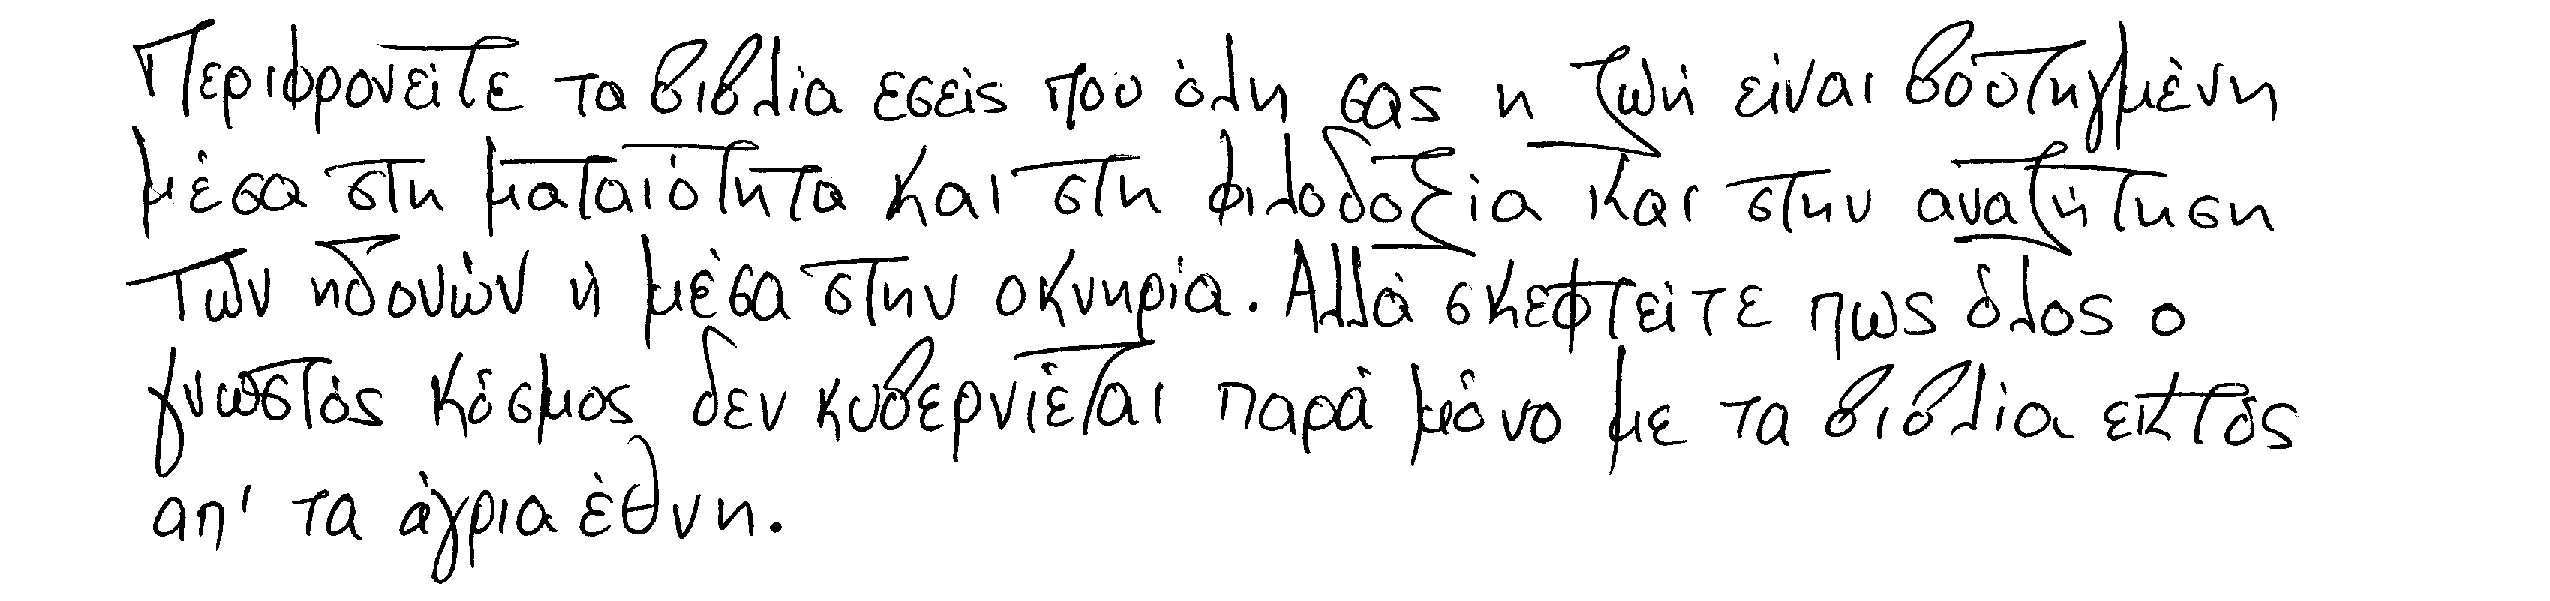 Περιφρονείτε τα βιβλία εσείς που όλη σας η ζωή είναι βουτηγμένη
μέσα στη ματαιότητα και στη φιλοδοξία και στην αναζήτηση
των ηδονών ή μέσα στην οκνηρία. Αλλά σκεφτείτε πως όλος ο
γνωστός κόσμος δεν κυβερνιέται παρά μόνο με τα βιβλία εκτός
απ' τα άγρια έθνη.